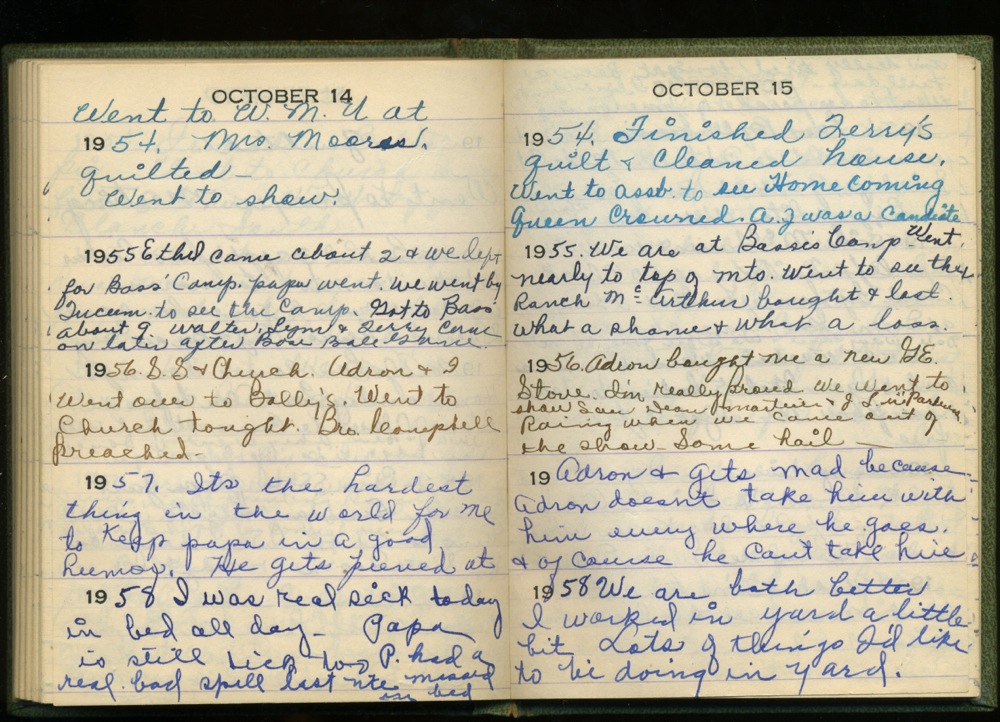 OCTOBER 14
Went to W. M. U at
1954. Mrs. Moores.
quilted —
Went to show.
1955 Ethel came about 2 & we left
for Bass' Camp. papa went. We went by
Tucum. to see the Camp. Got to Bass'
about 9. Walter, Lynn & Jerry came
on later after Base Ball Game.
1956. S.S & Church. Adron & I
went over to Bolly's. Went to
Church tonght. Bro. Campbell
preached —
1957. Its the hardest
thing in the world for me
to Keep papa in a good
humor. He gets peeved at
1958 I was real sick today
in bed all day — Papa
is still sick too P. had a
real bad spill last nte missed
in bed
OCTOBER 15
1954. Finished Jerry's
quilt & Cleaned house.
Went to assb. to see Home Coming
Queen Crowned. A. J was a Candiate
1955. We are at Basse's Camp Went
nearly to top of mts. Went to see the
Ranch Mc Arthur bought & lost.
What a shame & what a loss.
1956. Adron bought me a new G.E.
Stove. Im really proud We went to
show Saw Dean Martin & J Lewis
Raining when we came out of
the show. Some hail —
19 Adron & gets mad because
Adron doesnt take him with
him every where he goes.
& of course he cant take him
1958 We are both better
I worked in yard a little
bit. Lots of things I'd like
to be doing in yard.